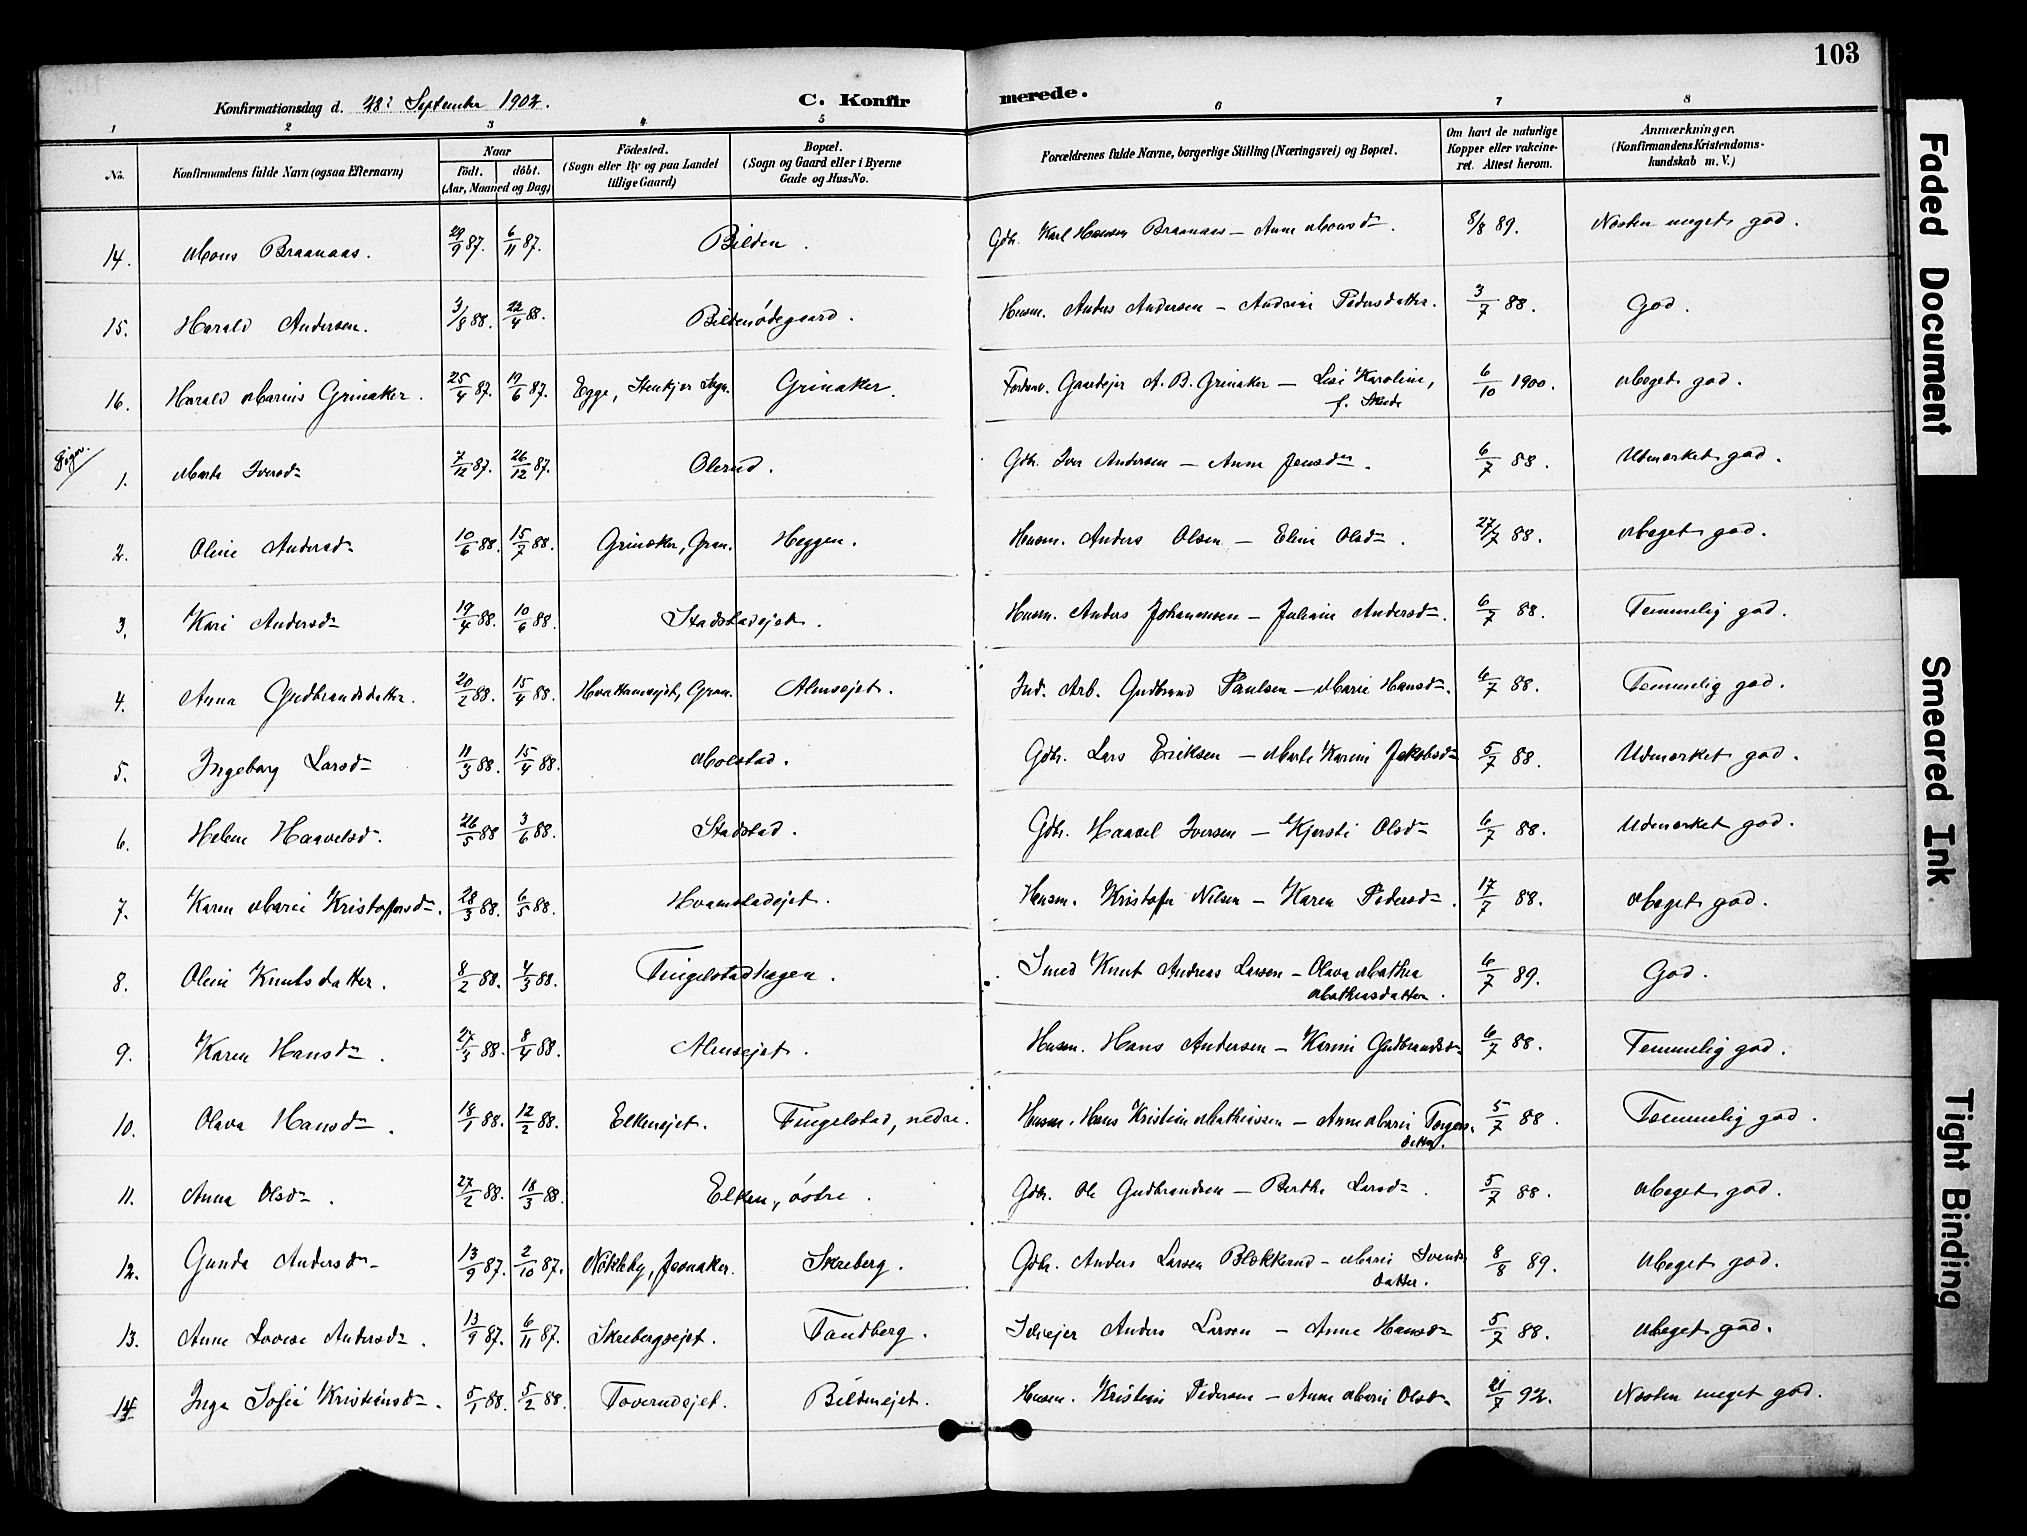 103
Konfirmationsdag d. 28: September 1902.
C. Konfirmerede.
1 2 3 4 5 6 7 8
No. Konfirmandens fulde Navn (ogsaa Efternavn) Naar födt. döbt. (Aar, Maaned og Dag) Födested. (Sogn eller By og paa Landet tillige Gaard) Bopæl. (Sogn og Gaard eller i Byerne Gade og Hus-No. Forældrenes fulde Navne, borgerlige Stilling (Næringsvei) og Bopæl. Om havt de naturlige Kopper eller vakcineret. Attest herom. Anmærkninger. (Konfirmandens Kristendomskundskab m. V.)
14. Mons Braanaas. 29/9 87. 6/11 87. Bilden. Gdbr. Karl Hansen Braanaas - Anne Monsd. 8/8 89. Næsten meget god.
15. Harald Andersen. 3/3 88. 22/4 88. Bildenødegaard. Husm. Anders Andersen - Andrine Pedersdatter. 3/7 88. God.
16. Harald Marius Grinaker. 25/4 87. 19/6 87. Egge, Stenkjer Sogn. Grinaker. Forhenv. Gaardejer A. B. Grinaker - Lisi Karoline, f. Skude 6/10 1900. Meget god.
Piger.
1. Marte Iversd. 7/12 87. 26/12 87. Olerud. Gdbr. Iver Andersen - Anne Jensdr. 6/7 88. Udmerket god.
2. Oline Andersd. 10/6 88. 15/7 88. Grinaker, Gran. Heggen. Husm. Anders Olsen - Eline Olsd. 27/7 88. Meget god.
3. Kari Andersd. 19/4 88. 10/6 88. Stadstadejet. Husm. Anders Johannesen - Juliane Andersd. 6/7 88. Temmelig god.
4. Anna Gudbrandsdatter. 20/2 88. 15/4 88. Hvattumsejet, Gran. Almsejet. Ind. Arb. Gudbrand Paulsen - Marie Hansd. 6/7 88. Temmelig god.
5. Ingeborg Larsd. 11/3 88. 15/4 88. Molstad. Gdbr. Lars Eriksen - Marte Karine Jakobsd. 5/7 88. Udmerket god.
6. Helene Haavelsd. 26/5 88 3/6 88. Stadstad. Gdbr. Haavel Iversen - Kjersti Olsd. 6/7 88. Udmerket god.
7. Karen Marie Kristoffersd. 28/3 88. 6/5 88. Hvamstadejet. Husm. Kristoffer Nilsen - Karen Pedersd. 17/7 88. Meget god.
8. Oline Knutsdatter. 8/2 88. 4/3 88. Tingelstadhagen. Smed Knut Andreas Larsen - Olava Mathea Mathiasdatter. 6/7 89. God.
9. Karen Hansd. 27/3 88. 8/4 88. Almsejet. Husm. Hans Andersen - Karine Gudbrandsd. 6/7 88. Temmelig god.
10. Olava Hansd. 18/1 88. 12/2 88. Elkenejet. Tingelstad, nedre. Husm. Hans Kristian Mathiassen - Anne Marie Torgersdatter. 5/7 88. Temmelig god.
11. Anna Olsd. 27/2 88. 18/3 88. Elken, östre. Gdbr. Ole Gudbrandsen - Berthe Larsd. 5/7 88. Meget god.
12. Gunda Andersd. 13/9 87. 2/10 87. Nökleby, Jevnaker. Skreberg. Gdbr. Anders Larsen Blækkerud - Marie Svendsdatter. 8/8 89. Meget god.
13. Anne Lovise Andersd. 13/9 87. 6/11 87. Skrebergsejet. Tandberg. Selvejer Anders Larsen - Anne Hansd. 5/7 88. Meget god.
14 Inga Sofie Kristiansd. 5/1 88. 5/2 88. Toverudejet. Bildenejet. Husm. Kristian Pedersen - Anne Marie Olsd. 21/7 92. Næsten meget god.
Faded Document
Smeared Ink
Tight Binding